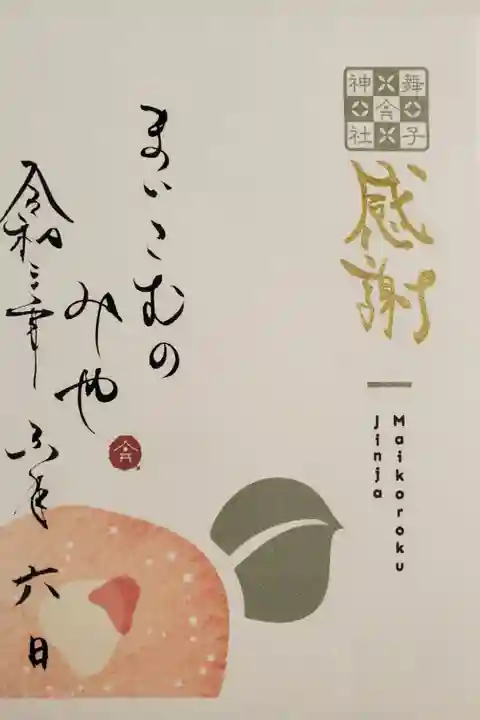 舞子
六
神社
感謝
Maikoroku
Jinja
まいこむの
みや
令和三年六月六日